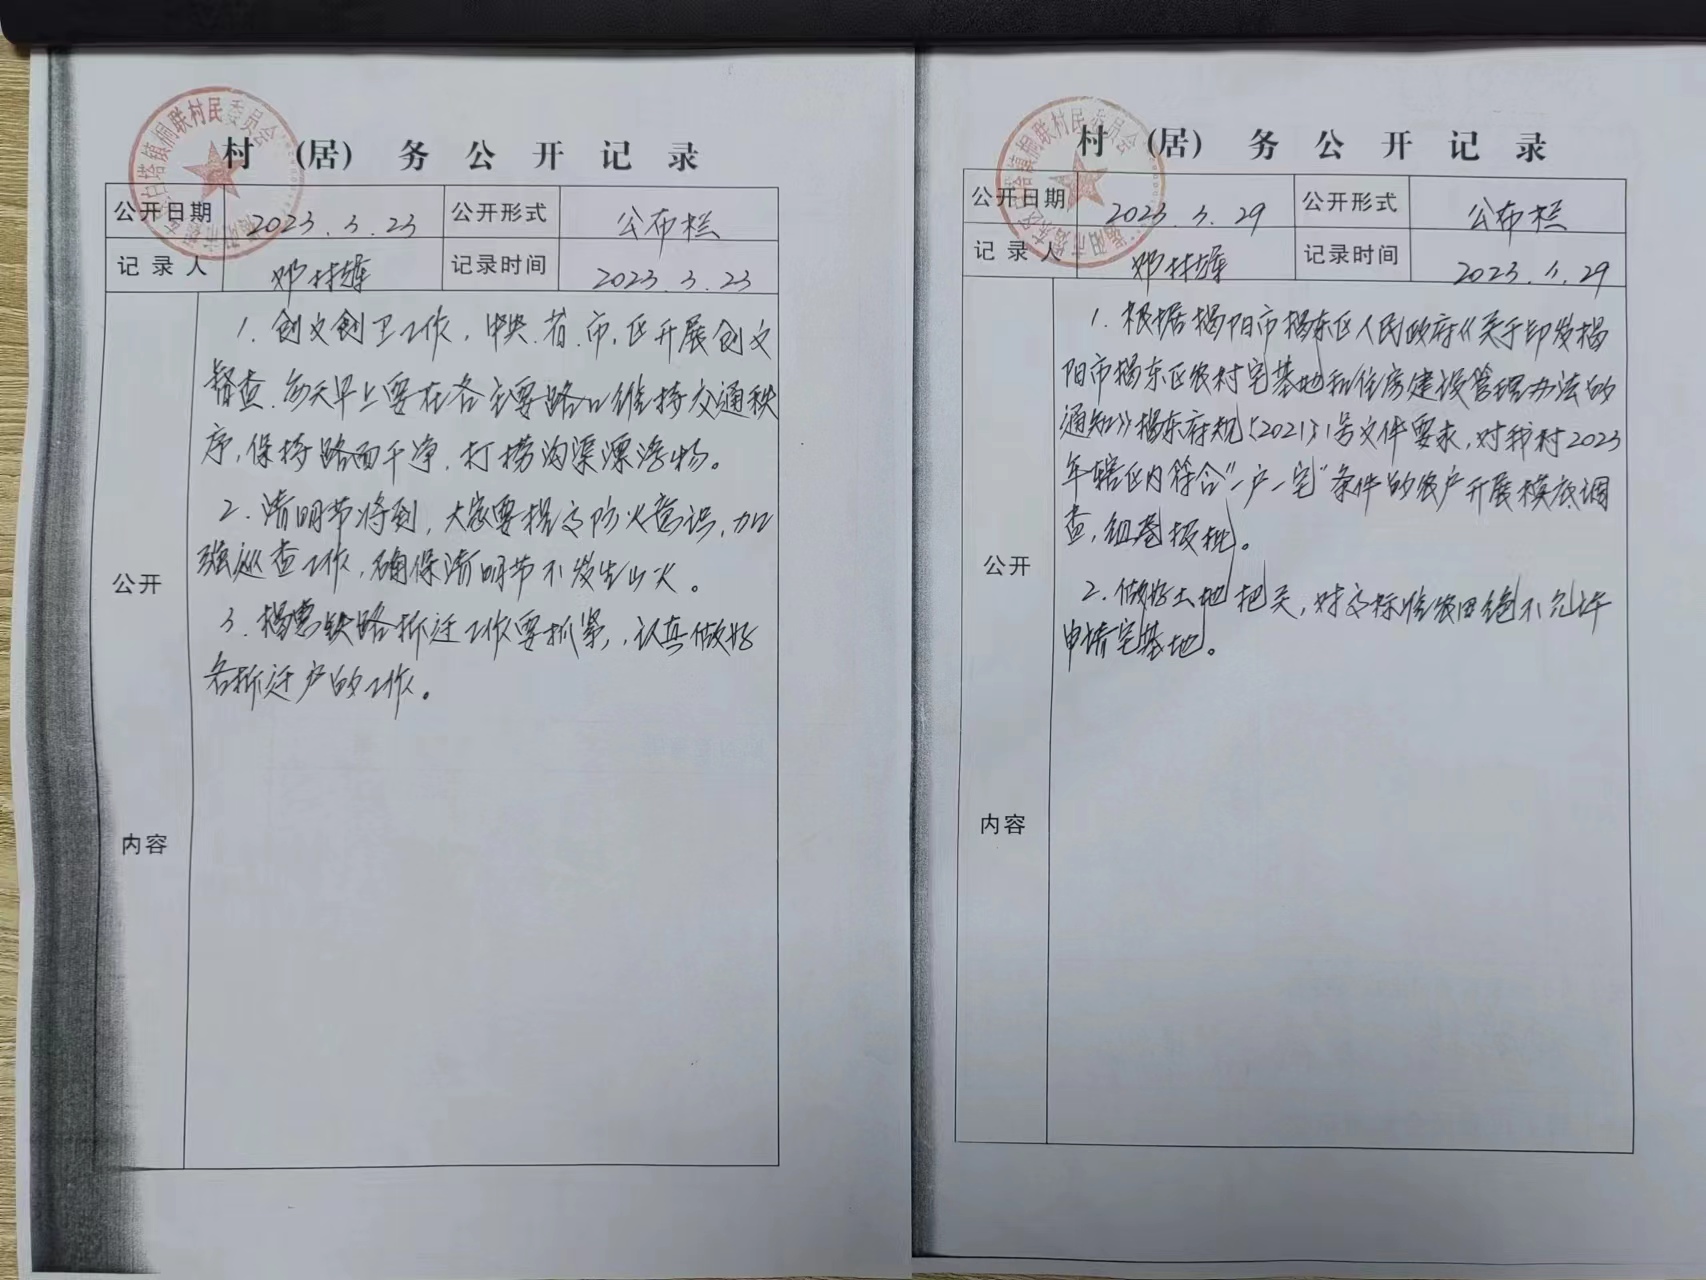 村(居)务公开记录
公开日期 2023.3.23 公开形式 公布栏
记录人 邓村雄 记录时间 2023.3.23
公开内容
1.创文创卫工作,中央.省.市.区开展创文
督查.每天早上要在各主要路口维持交通秩
序,保持路面干净.打捞沟渠漂浮物。
2.清明节将到,大家要提高防火意识,加
强巡查工作,确保清明节不发生山火。
3.揭惠铁路拆迁工作要抓紧,认真做好
各拆迁户的工作。
村(居)务公开记录
公开日期 2023.3.29 公开形式 公布栏
记录人 邓村雄 记录时间 2023.3.29
公开内容
1.根据揭阳市揭东区人民政府《关于印发揭
阳市揭东区农村宅基地和住房建设管理办法的
通知》揭东府规〔2021〕1号文件要求,对我村2023
年辖区内符合“一户一宅”条件的农户开展摸底调
查,组卷报批。
2.做好土地把关,对高标准农田绝不允许
申请宅基地。
揭阳市揭东区白塔镇桐联村民委员会
揭阳市揭东区白塔镇桐联村民委员会